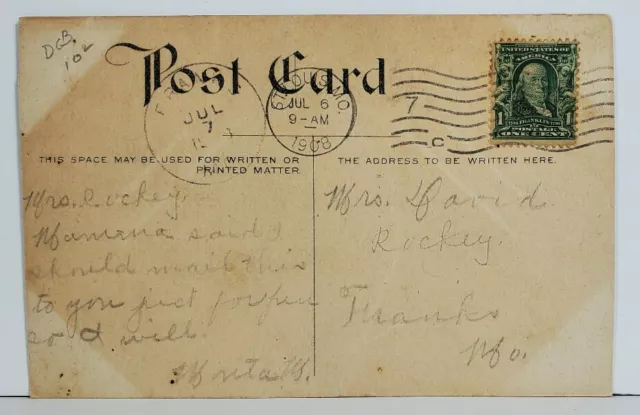 DGB.
10
Post Card
JUL
7
ST. LOUIS, MO.
JUL 6
9-AM
1908
7
C
UNITED STATES OF
AMERICA
1 FRANKLIN 1
POSTAGE
ONE CENT
THIS SPACE MAY BE USED FOR WRITTEN OR
PRINTED MATTER
THE ADDRESS TO BE WRITTEN HERE.
Mrs. Rockey
Mamma said I
should mail this
to you just for fun
so I will.
M.
Mrs. David
Rockey.
Franks
Mo.